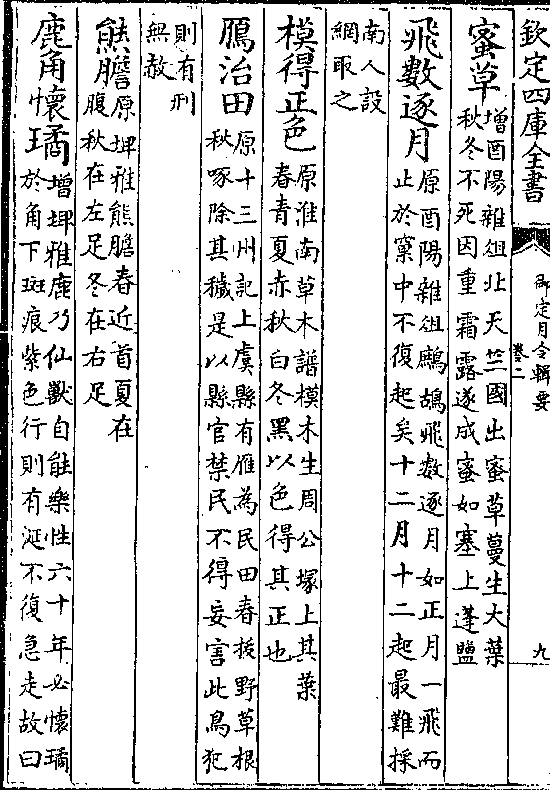 欽定四庫全書
御定月令輯要
卷二
九
蜜草增酉陽雜俎北天竺國出蜜草蔓生大葉
秋冬不死因重霜露遂成蜜如塞上蓬鹽
飛數逐月原酉陽雜俎鷓鴣飛數逐月如正月一飛而
止於窠中不復起矣十二月十二起最難採
南人設
網取之
模得正色原淮南草木譜模木生周公塚上其葉
春青夏赤秋白冬黑以色得其正也
鴈治田原十三州記上虞縣有雁為民田春拔野草根
秋啄除其穢是以縣官禁民不得妄害此鳥犯
則有刑
無赦
熊膽原埤雅熊膽春近首夏在
腹秋在左足冬在右足
鹿角懷璚增埤雅鹿乃仙獸自能樂性六十年必懷璚
於角下斑痕紫色行則有涎不復急走故曰